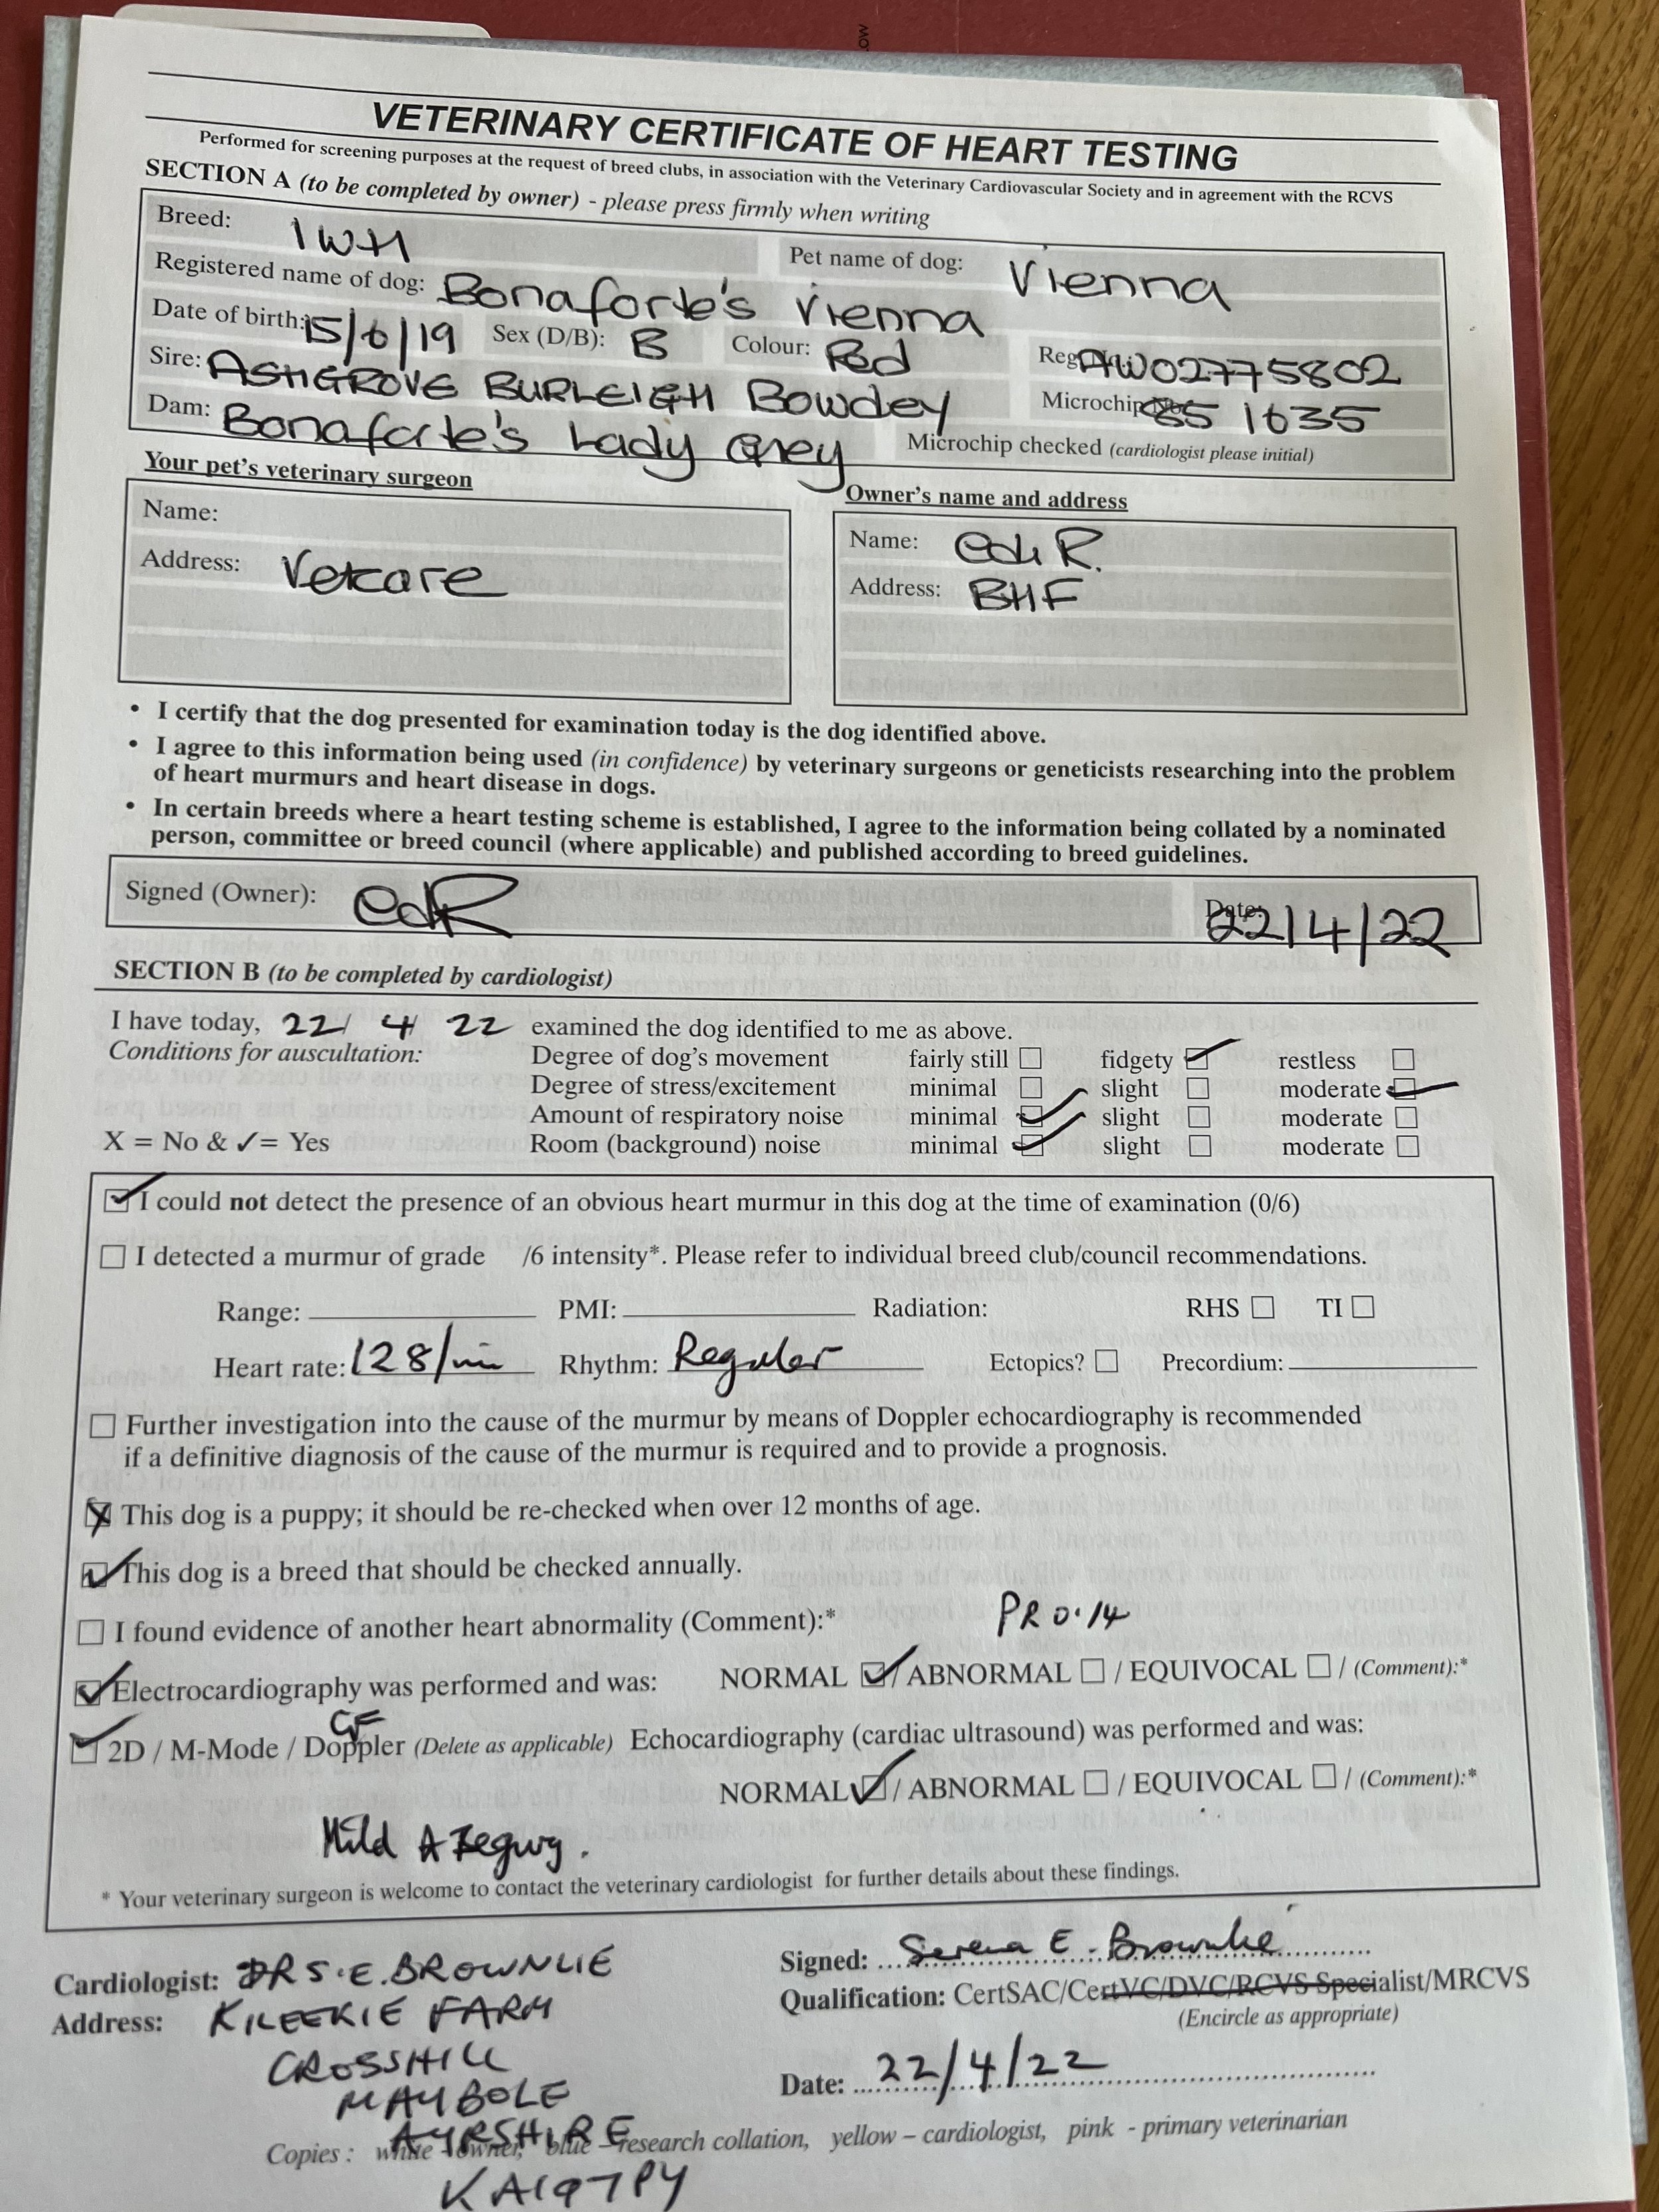 VETERINARY CERTIFICATE OF HEART TESTING
Performed for screening purposes at the request of breed clubs, in association with the Veterinary Cardiovascular Society and in agreement with the RCVS
SECTION A (to be completed by owner) - please press firmly when writing
Breed: IWH Pet name of dog: Vienna
Registered name of dog: Bonaforte's Vienna
Date of birth: 15/6/19 Sex (D/B): B Colour: Red Reg AW02775802
Sire: ASHGROVE BURLEIGH Bowdey Microchip No: 851635
Dam: Bonaforte's Lady Grey Microchip checked (cardiologist please initial)
Your pet's veterinary surgeon Owner's name and address
Name: Name: edi R.
Address: Vetcare Address: BHF
• I certify that the dog presented for examination today is the dog identified above.
• I agree to this information being used (in confidence) by veterinary surgeons or geneticists researching into the problem
of heart murmurs and heart disease in dogs.
• In certain breeds where a heart testing scheme is established, I agree to the information being collated by a nominated
person, committee or breed council (where applicable) and published according to breed guidelines.
Signed (Owner): edR Date: 22/4/22
SECTION B (to be completed by cardiologist)
I have today, 22/ 4/ 22 examined the dog identified to me as above.
Conditions for auscultation: Degree of dog's movement fairly still fidgety ✓ restless
Degree of stress/excitement minimal slight moderate ✓
Amount of respiratory noise minimal ✓ slight moderate
X = No & ✓= Yes Room (background) noise minimal ✓ slight moderate
✓ I could not detect the presence of an obvious heart murmur in this dog at the time of examination (0/6)
I detected a murmur of grade /6 intensity*. Please refer to individual breed club/council recommendations.
Range: PMI: Radiation: RHS TI
Heart rate: 128/min Rhythm: Regular Ectopics? Precordium:
Further investigation into the cause of the murmur by means of Doppler echocardiography is recommended
if a definitive diagnosis of the cause of the murmur is required and to provide a prognosis.
X This dog is a puppy; it should be re-checked when over 12 months of age.
✓ This dog is a breed that should be checked annually.
I found evidence of another heart abnormality (Comment):* PR 0.14
✓ Electrocardiography was performed and was: NORMAL ✓ / ABNORMAL / EQUIVOCAL / (Comment):*
CF
✓ 2D / M-Mode / Doppler (Delete as applicable) Echocardiography (cardiac ultrasound) was performed and was:
NORMAL ✓ / ABNORMAL / EQUIVOCAL / (Comment):*
Mild A
* Your veterinary surgeon is welcome to contact the veterinary cardiologist for further details about these findings.
Cardiologist: DR S.E. BROWNLIE Signed: Serena E. Brownlie
Address: KILEEKIE FARM Qualification: CertSAC/CertVC/DVC/RCVS Specialist/MRCVS
(Encircle as appropriate)
CROSSHILL
MAYBOLE Date: 22/4/22
AYRSHIRE
Copies : white - owner, blue – research collation, yellow – cardiologist, pink - primary veterinarian
KA197PY